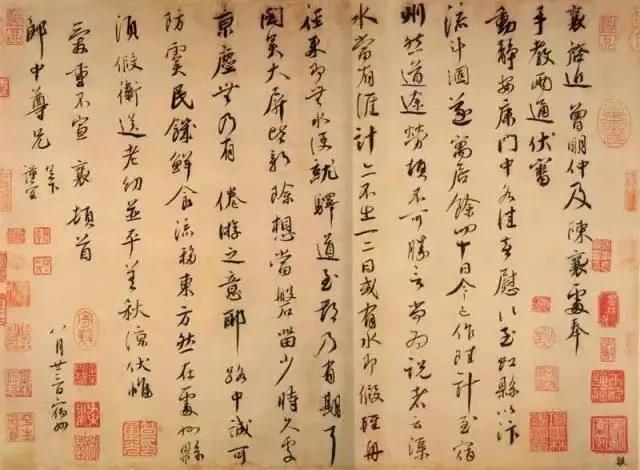 襄啓近曾明仲及陳襄處奉
手教兩通伏審
動靜安康門中各佳喜慰以至虹縣以汴
流斗涸遂寓居餘四十日今已作陸計至宿
州然道途勞頓不可勝言尚為說者云渠
水當有涯計亦不出一二日或有水即假輕舟
徑來即無水便就驛道至都乃有期耳
閩吳大屏皆新除想當磐留少時久處
京塵無乃有倦游之意耶路中誠可
防虞民饑鮮食流移東方然在處州縣
須假衛送老幼並平善秋涼伏惟
愛重不宣 襄 頓首
郎中尊兄 足下 謹空
八月廿二日宿州